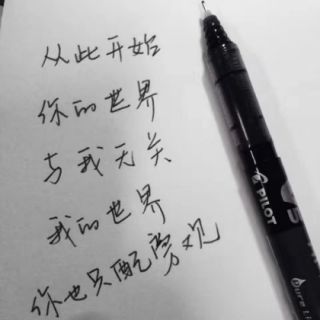 从此开始
你的世界
与我无关
我的世界
你也只配旁观
PILOT